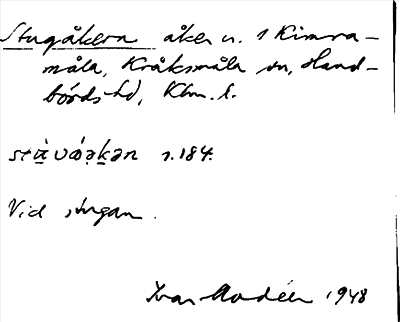 Stugåkern åker n. 1 Rimra-
måla, Kråksmåla sn, Hand-
börds hd, Klm. l.
s. 184.
Vid stugan.
Ivar Modéer 1948